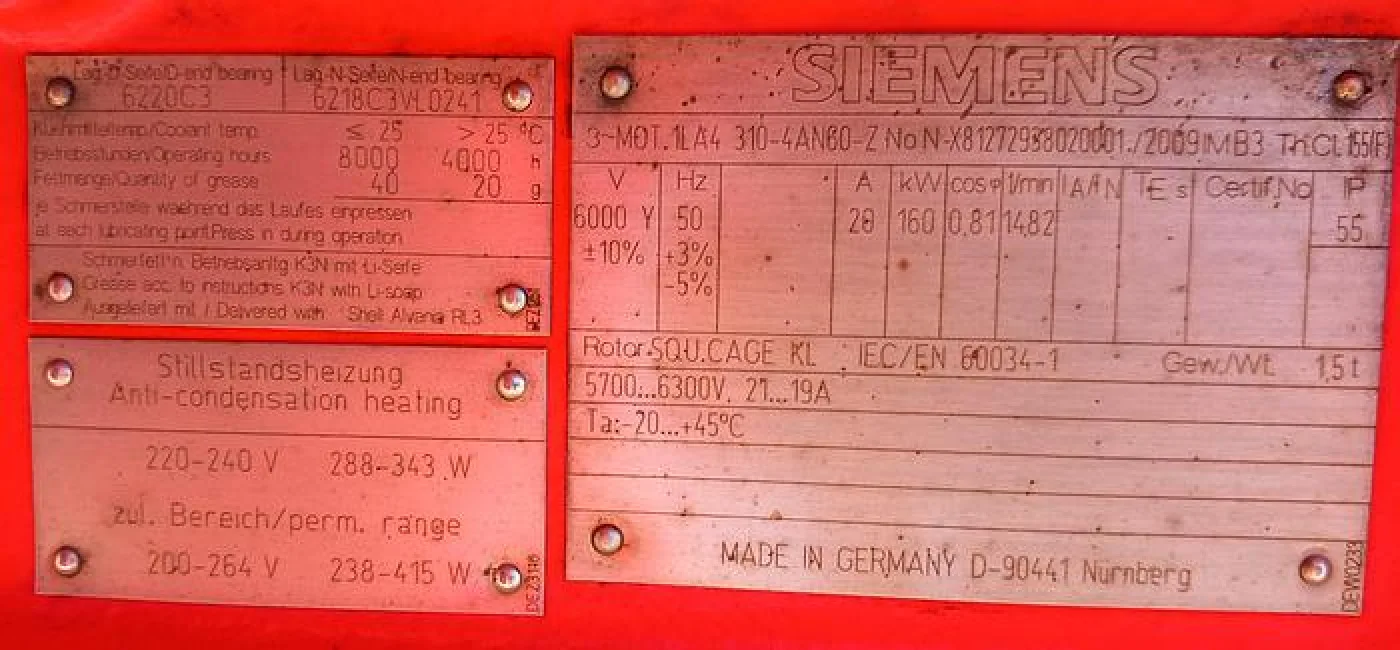 Lag-D-Seite/D-end bearing Lag-N-Seite/N-end bearing
6220C3 6218C3VL0241
Kuehlmitteltemp/Coolant temp. ≤ 25 > 25 °C
Betriebsstunden/Operating hours 8000 4000 h
Fettmenge/Quantity of grease 40 20 g
je Schmierstelle waehrend des Laufes einpressen
at each lubricating point.Press in during operation
Schmierfett n. Betriebsanltg K3N mit Li-Seife
Grease acc. to instructions K3N with Li-soap
Ausgeliefert mit / Delivered with Shell Alvania RL3
Stillstandsheizung
Anti-condensation heating
220-240 V 288-343 W
zul. Bereich/perm. range
200-264 V 238-415 W
DE28146
SIEMENS
3~MOT. 1LA4 310-4AN60-Z No N-X81272938020001./2009 IM B3 Th.CL 155(F)
V Hz A kW cosφ 1/min IA/IN TE s Certif.No IP
6000 Y 50 20 160 0,81 1482 55
±10% +3%
-5%
Rotor SQU.CAGE KL IEC/EN 60034-1 Gew./Wt. 1,5 t
5700...6300V, 21...19A
Ta:-20...+45°C
MADE IN GERMANY D-90441 Nürnberg
DEVW0233